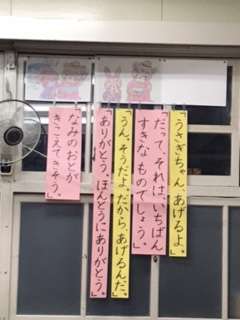 「うさぎちゃん、あげるよ。」
「だって、それは、いちばん
すきなものでしょう。」
「うん。そうだよ。だから、あげるんだ。」
「ありがとう。ほんとうにありがとう。」
なみのおとが
きこえてきそう。